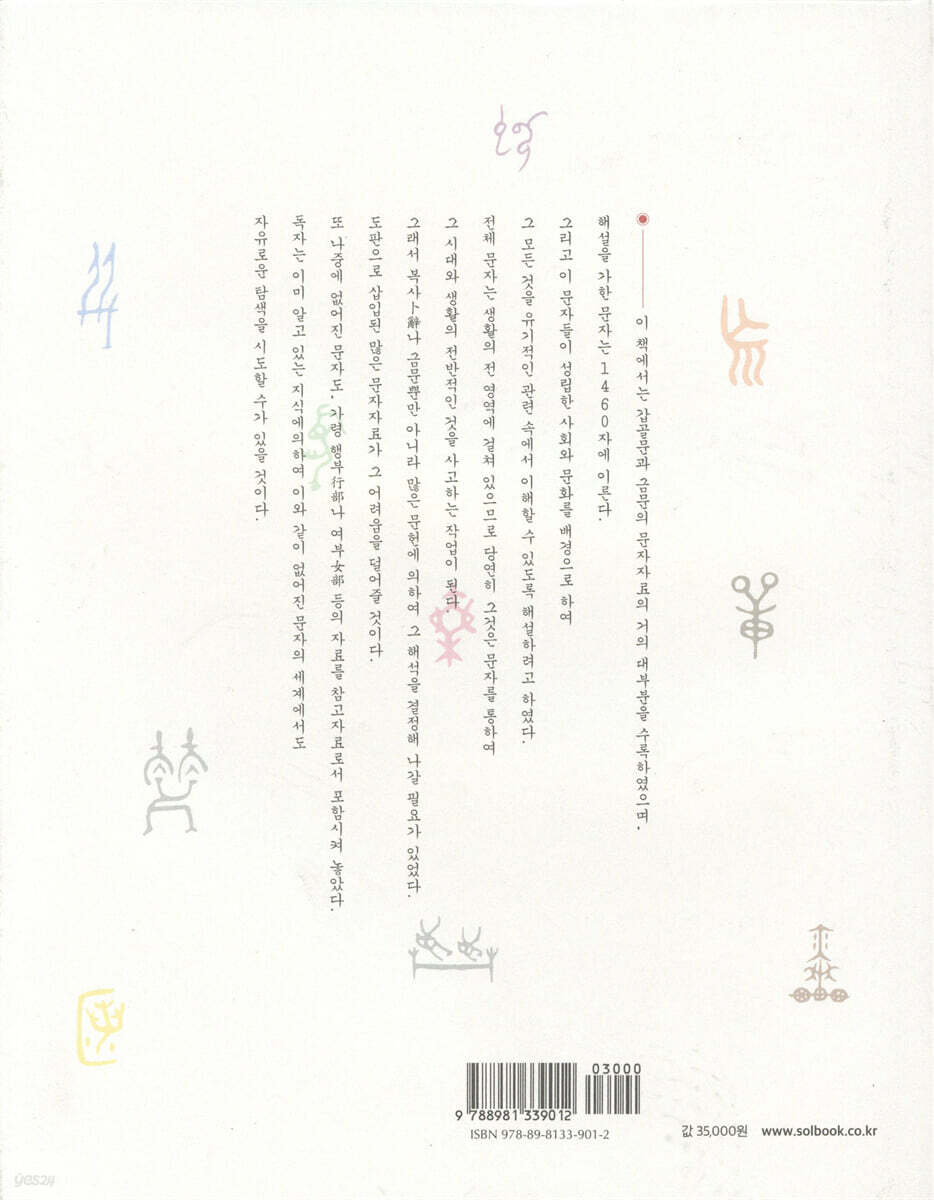 이 책에서는 갑골문과 금문의 문자자료의 거의 대부분을 수록하였으며,
해설을 가한 문자는 1460자에 이른다.
그리고 이 문자들이 성립한 사회와 문화를 배경으로 하여
그 모든 것을 유기적인 관련 속에서 이해할 수 있도록 해설하려고 하였다.
전체 문자는 생활의 전 영역에 걸쳐 있으므로 당연히 그것은 문자를 통하여
그 시대와 생활의 전반적인 것을 사고하는 작업이 된다.
그래서 복사卜辭나 금문뿐만 아니라 많은 문헌에 의하여 그 해석을 결정해 나갈 필요가 있었다.
도판으로 삽입된 많은 문자자료가 그 어려움을 덜어줄 것이다.
또 나중에 없어진 문자도, 가령 행부行部나 여부女部 등의 자료를 참고자료로서 포함시켜 놓았다.
독자는 이미 알고 있는 지식에의하여 이와 같이 없어진 문자의 세계에서도
자유로운 탐색을 시도할 수가 있을 것이다.
03000
9 788981 339012
ISBN 978-89-8133-901-2
값 35,000원 www.solbook.co.kr
yes24